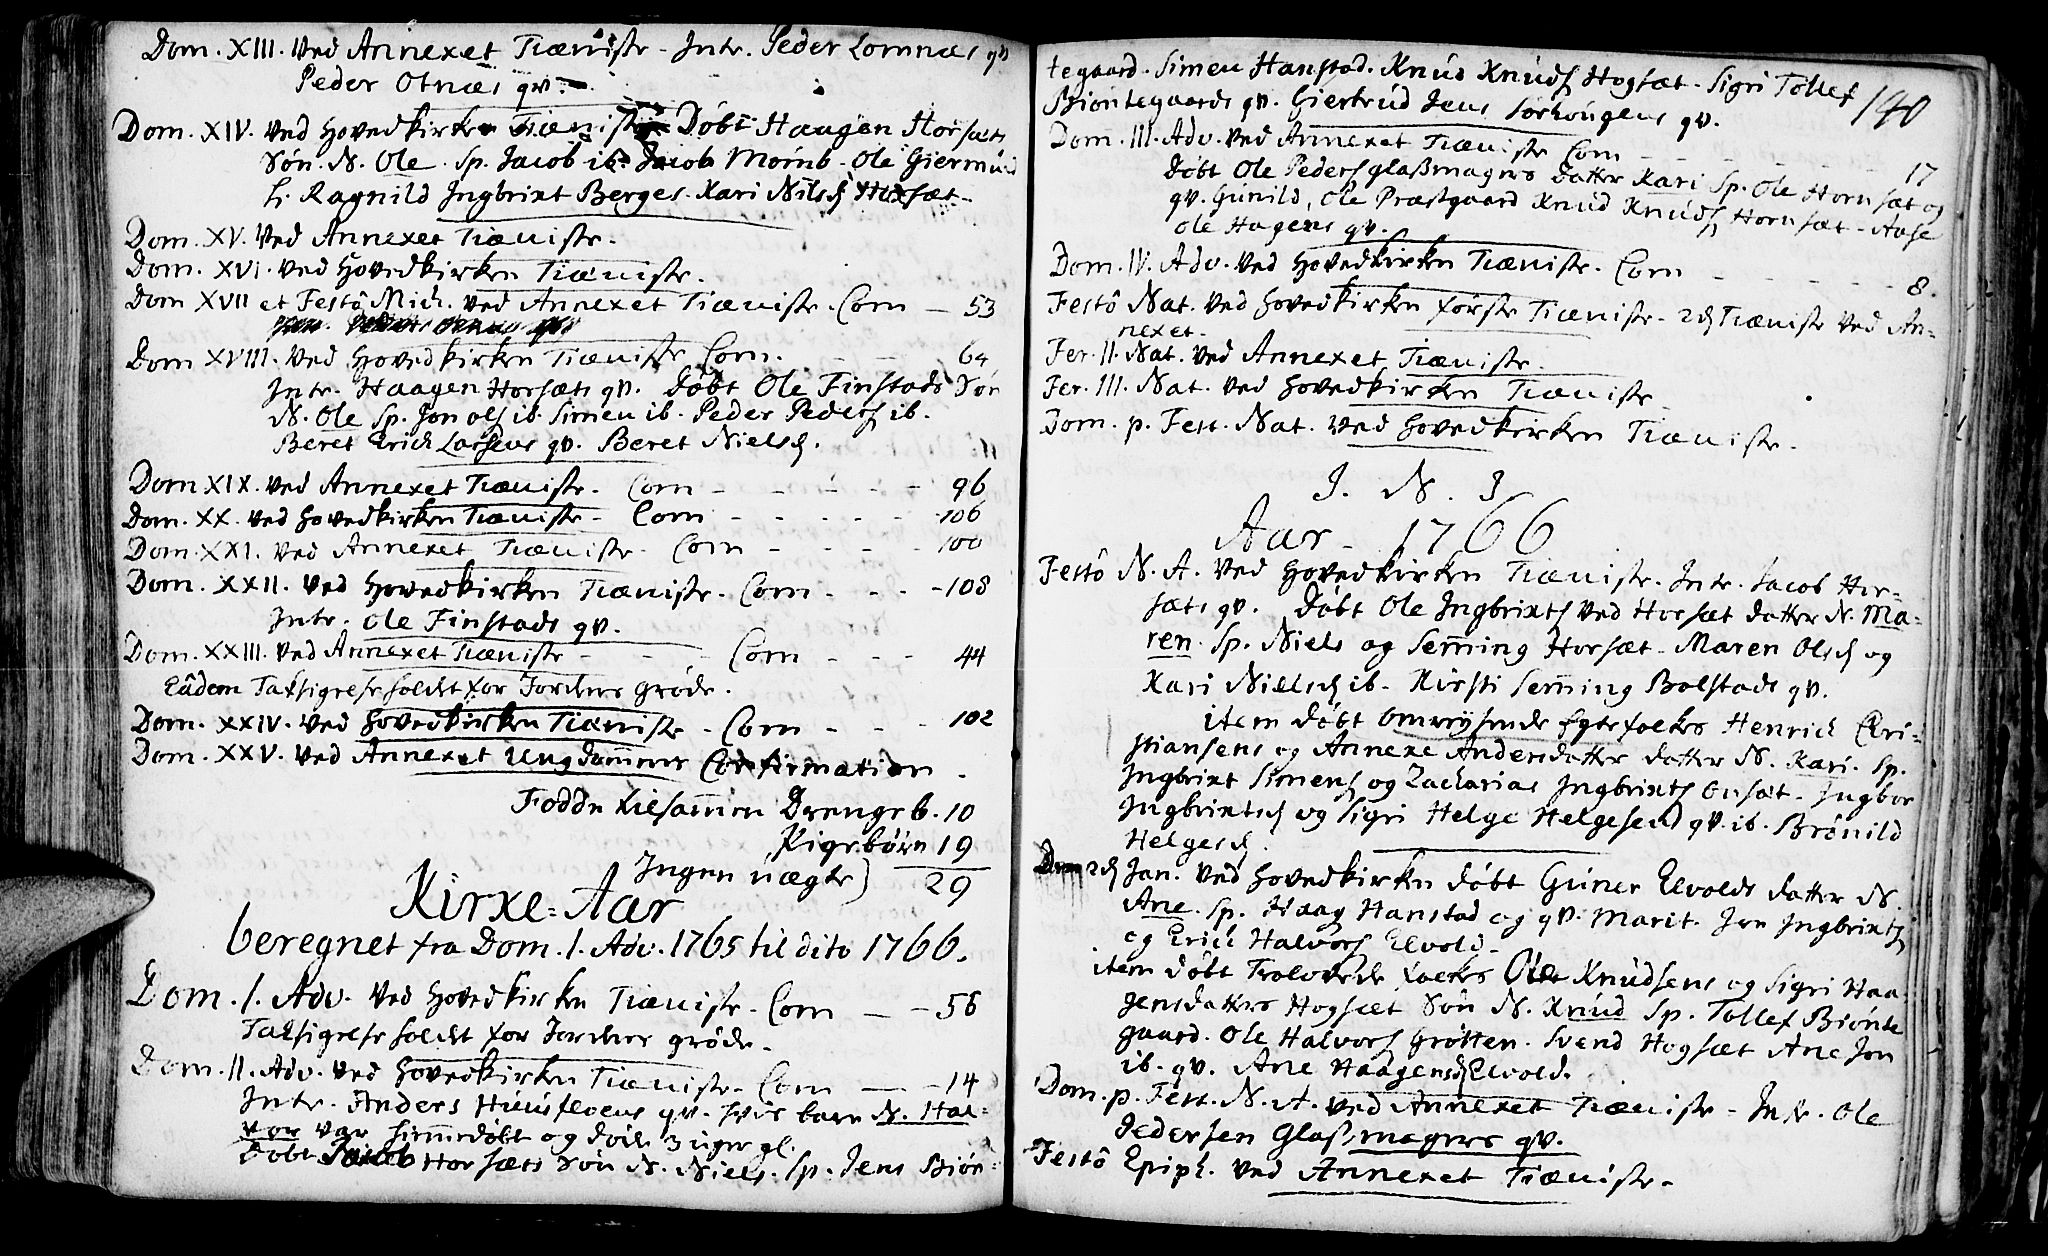 Dom. XIII. ved Annexet Tieniste - Intr. Peder Lomnæs qv
Peder Otnæs qv.
Dom. XIV. ved Hovedkirken Tieniste Døbt Haagen Horsæts
Søn. N. Ole. Sp. Jacob ib. Jacob Momb - Ole Giermund
h. Ragnild Ingbrixt Berges. Kari Nilsd.
Dom. XV. ved Annexet Tieniste.
Dom. XVI. ved Hovedkirken Tieniste.
Dom XVII et Festô Mich. ved Annexet Tieniste. Com - 53
Dom XVIII. ved Hovedkirken Tieniste Com. - - 64
Intr. Haagen Horsæts qv. Døbt Ole Finstads Søn
N. Ole Sp. Jon Ols ib. Simen ib. Peder Peders ib.
Beret Erich Larsens qv. Beret Nielsd.
Dom XIX. ved Annexet Tieniste. Com - - - - - 96
Dom. XX. ved Hovedkirken Tieniste - Com - - - - - 106
Dom. XXI. ved Annexet Tieniste. Com - - - - 100
Dom. XXII. ved Hovedkirken Tieniste. Com - - - 108
Intr. Ole Finstads qv.
Dom. XXIII. ved Annexet Tieniste - - - Com - - - 44
Eâdem Taksigelse holdt for Jordens grøde.
Dom. XXIV. ved Hovedkirken Tieniste - Com - - - 102
Dom. XXV. ved Annexet Ungdommens Confirmation.
Fødde tilsammen Drenge b. 10
Pigebørn 19
Ingen uægte) 29
Kirke=Aar
beregnet fra Dom. 1. Adv. 1765 til dito 1766.
Dom. 1. Adv. ved Hovedkirken Tieniste. Com - - 56
Taksigelse holdt for Jordens grøde.
Dom. II. Adv. ved Hovedkirken Tieniste. Com - - 14
Intr. Anders Huusfloens qv. hvis barn N. Hal=
vor var hiemmedøbt og døde 3 uger gl.
Døbt Horsæts Søn N. Niels. Sp. Jens Biøn=
140
tegaard. Simen Hanstad. Knud Knuds Hogsæt - Sigri Tollef
Biøntegaards qv. Giertrud Jens qv.
Dom. III. Adv. ved Annexet Tieniste Com - - - - - - 17
Døbt Ole Peders Glasmagers datter Kari Sp. Ole Hornsæt og
qv. Gunild, Ole Præstgaard Knud Knuds Hornsæt - Aase
Ole Hagens qv.
Dom. IV. Adv. ved Hovedkirken Tieniste. Com - - - - - 8.
Festô Nat. ved Hovedkirken første Tieniste - 2d Tieniste ved An=
nexet.
Fer. II. Nat. ved Annexet Tieniste.
Fer. III. Nat. ved Hovedkirken Tieniste
Dom. p. Fest. Nat. ved Hovedkirken Tieniste.
J. N. J
Aar - 1766
Festô N. A. ved Hovedkirken Tieniste. Intr. Jacob Hor=
sæts qv. Døbt Ole Ingbrixts ved Horsæt datter N. Ma=
ren. Sp. Niels og Semming Horsæt - Maren Olsd og
Kari Nielsd ib. Kirsti Semming Bolstads qv.
item døbt omreisende Egtefolkes Henrich Chri=
stiansens og Annexe Andersdatter datter N. Kari. Sp.
Ingbrixt Simens og Zacharias Ingbrixts Onsæt. Ingbor
Ingbrixtsd og Sigri Helge Helgesens qv. ib. Brønild
Helgesd.
2d Jan. ved Hovedkirken døbt Guner Elvolds datter N.
Ane. Sp. Haag Hanstad og qv. Marit. Jon Ingbrixts
og Erich Halvors Elvold.
item døbt Trolovede folkes Ole Knudsens og Sigri Haa=
gensdatters Hogsæt Søn N. Knud Sp. Tollef Biønte
gaard. Ole Halvors Grøtten. Svend Hogsæt Ane Jon
ib. qv. Ane Haagensd Elvold.
Dom. p. Fest. N. A. ved Annexet Tieniste - Intr. Ole
Pedersen Glasmagers qv.
Festô Epiph. ved Annexet Tieniste.